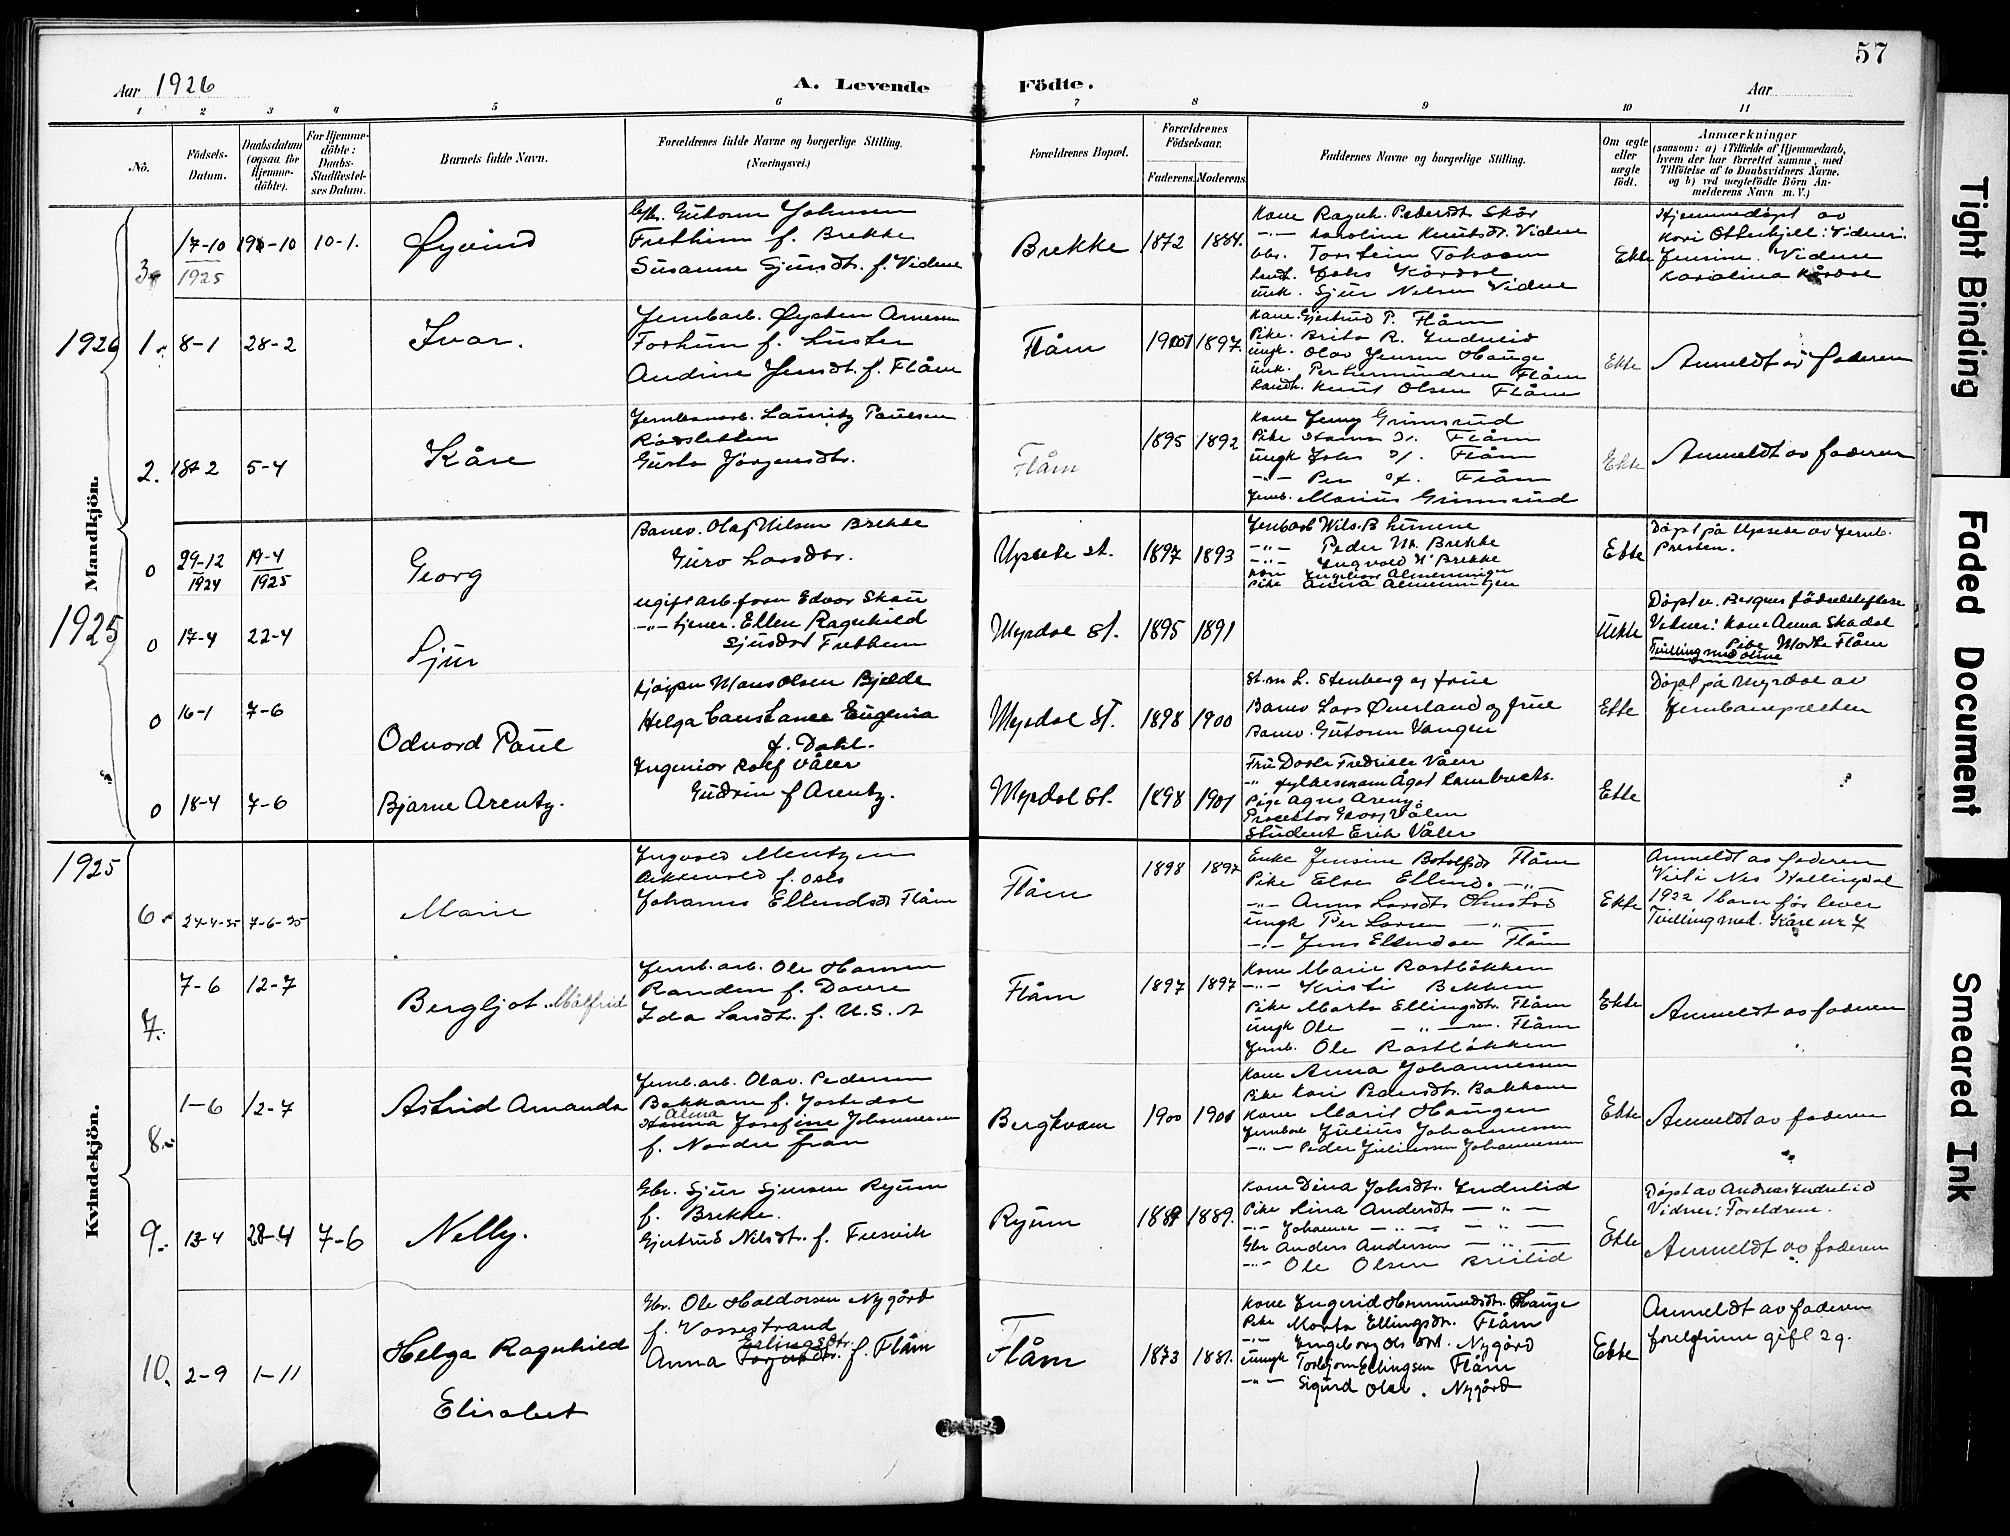 57
Aar 1926
A. Levende Födte.
Aar
1 2 3 4 5 6 7 8 9 10 11
No.
Födsels-Datum.
Daabsdatum (ogsaa for Hjemme-döbte).
For Hjemme-döbte: Daabs-Stadfæstel-ses Datum.
Barnets fulde Navn.
Forældrenes fulde Navne og borgerlige Stilling. (Næringsvei.)
Forældrenes Bopæl.
Forældrenes Födselsaar.
Faderens. Moderens.
Faddernes Navne og borgerlige Stilling.
Om ægte eller uægte födt.
Anmærkninger
(saasom: a) i Tilfælde af Hjemmedaab, hvem der har forrettet samme, med Tilföielse af to Daabsvidners Navne, og b) ved uægtefödte Börn An-melderens Navn m. V.)
Mandkjön.
17-10 1925
10-1.
Øyvind
Gbr. Gutorm Johnsen
Fretheim f. Brekke
Susanne Sjursdtr. f. Videne
Brekke
1872 1884.
Kone Ragnh. Pedersdtr Skår
-"- Karoline Knutsdtr. Videne
Gbr. Torstein Tokvam
ungk. Sjur Nelsen Videne
Ekte
Hjemmedøpt av
Kari Otterhjell: Vidner:
Jensine Videne
Karolina Kårdal
1926
1. 8-1 28-2
Ivar.
Jernb.arb. Øystein Arnesen
Forhim f. Luster
Andrine Jensdtr. f. Flåm
Flåm
1897.
Kone Gjertrud P. Flåm
Pike. Brita R. Indrelid
ungk. Olav Jensen Hauge
Landh. Knut Olsen Flåm
Ekte
Anmeldt av faderen
2. 18-2 5-4
Kåre
Lauritz Paulsen
Rødsletten
Gusta Jørgensdtr.
Flåm
1895 1892
Kone Jenny Grimsrud
Pike Flåm
ungk Johs Flåm
-"- Per Flåm
Jernb. Marius Grimsrud
Ekte
Anmeldt av faderen
1925
0 29-12 1924 19-4 1925
Georg
Banev. Olaf Nilsen Brekke
Guro Larsdtr.
Upsete st.
1897 1893
Jernbarb Nils. B
-"- Peder Brekke
-"- Ingvald Brekke
Kone Ingeborg Almenningen
Pike Anna Almenningen
Ekte
Døpt på Upsete av Jernb.
Presten.
0 17-4 22-4
Sjur
ugift arb.form Edvar Skau
-"- tjener. Ellen Ragnhild
Sjursdtr Fretheim
Myrdal St.
1895 1891
Uekte
Døpt v. Bergens fødselstiftelse
Vidner: Kone Anna Skadal
Pike Marta Flåm
Tvilling med Oline
0 16-1 7-6
Odvard Paul
Mons Olsen Bjelde
Helga Constance Eugenia
f. Dahl.
Myrdal St.
1898 1900
St.m L. Stenberg og frue
Banev Lars Øverland og frue
Banev. Gutorm Vangen
Ekte
Døpt på Myrdal av
Jernbanepresten
0 18-4 7-6
Bjarne Arentz.
Ingeniør Rolf Våler
Gudrun f Arentz.
Myrdal St.
1898 1901
Fru Dorte Fredrikke Våler
-"- fylkesmann Ågot Lambrechts.
Pike Agnes Arentz.
Prorektor Georg Våler
Student Erik Våler
Ekte
Kvindekjön.
1925
6. 24-4-25 7-6-25
Marie
Ingvald Mentzen
f. Oslo
Johanna Ellendsdtr Flåm
Flåm
1898 1897
Enke Jensine Botolfsdtr Flåm
Pike Else Ellend. -"-
-"- Anna Larsdtr
ungk Per Larsen -"-
-"- Jens Ellendsen Flåm
Ekte
Anmeldt av faderen
Viet i Nes Hallingdal
1922 1 barn før lever
Tvilling med. Kåre nr 7
7. 7-6 12-7
Bergljot Målfrid
Jernb.arb. Ole Hansen
Randen f. Dovre
Ida Larsdtr. f. U.S.A
Flåm
1897 1897
Kone Marie Rostløkken
-"- Kristi Bekken
Pike Marta Ellingsdtr. Flåm
ungk Ole -"- Flåm
Jernb. Ole Rostløkken
Ekte
Anmeldt av faderen
8. 1-6 12-7
Astrid Amanda
Jernb.arb. Olav Pedersen
Bakkane f. Jostedal
Alma Josefine Johannesen
f. Nordre Fron
Berekvam
1900
Kone Anna Johannesen
Pike Kari Pedersdtr. Bakkane
Kone Marit Haugen
Jernbarb Julius Johannesen
-"- Peder Juliussen Johannesen
Ekte
Anmeldt av faderen
9. 13-4 28-4 7-6
Nelly.
Gbr. Sjur Sjursen Ryum
f. Brekke.
Gjertrud Nilsdtr. f. Fresvik
Ryum
1889 1889.
Kone Dina Johsdtr. Indrelid
Pike Lina Andersdtr -"-
-"- Johanne -"-
Gbr Anders Andersen -"-
-"- Ole Olsen Brislid
Ekte
Døpt av Andreas Indrelid
Vidner: Foreldrene.
Anmeldt av faderen
10. 2-9 1-11
Helga Ragnhild
Elisabet
Gbr. Ole Haldorsen Nygård
f. Vossestrand
Anna Erlingsdtr. f. Flåm
Flåm
1873 1881.
Kone Ingerid Hermundsdtr. Hauge
Pike Marta Ellingsdtr. Flåm
-"- Ingeborg Ols dtr. Nygård
ungk Torbjorn Ellingsen Flåm
-"- Sigurd Ols. Nygård
Ekte
Anmeldt av faderen
foreldrene gift 2 g.
Tight Binding
Faded Document
Smeared Ink